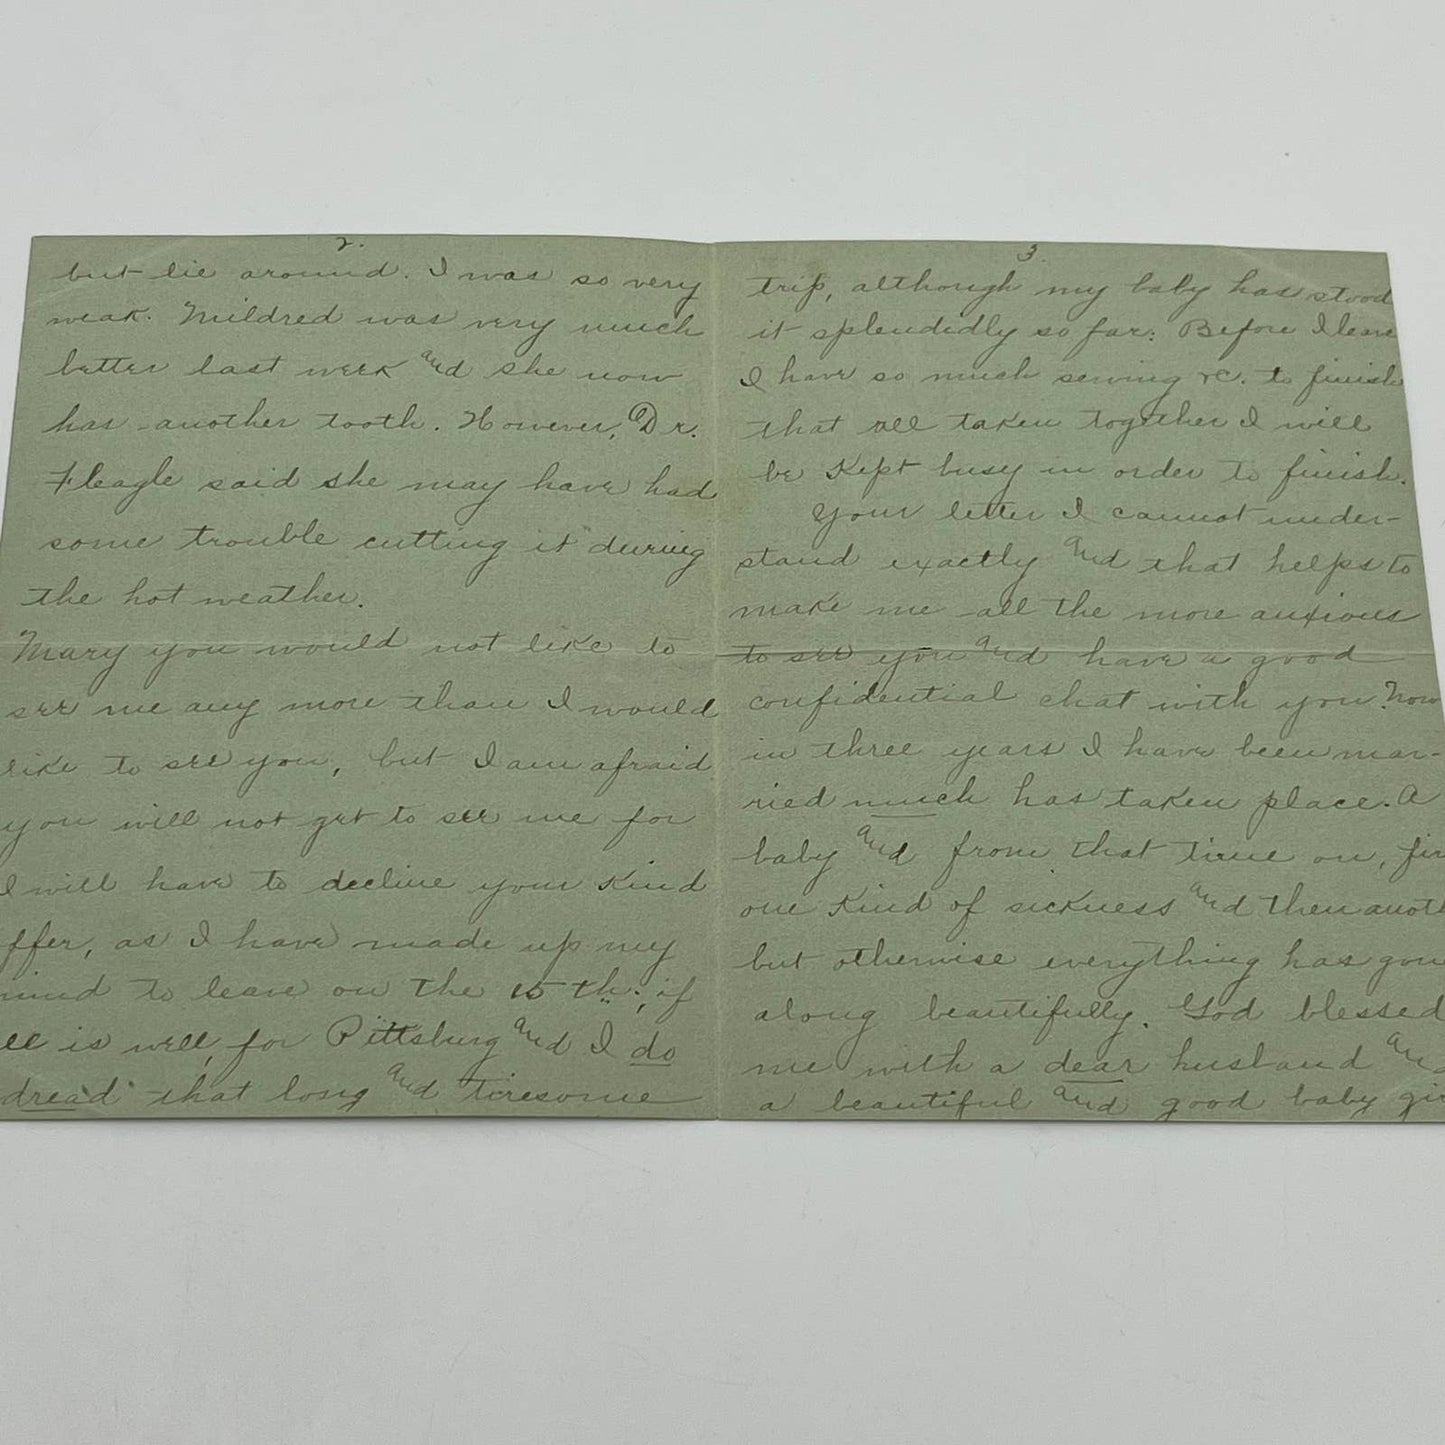 2.
but lie around. I was so very
weak. Mildred was very much
better last week and she now
has another tooth. However, Dr.
Fleagle said she may have had
some trouble cutting it during
the hot weather.
Mary you would not like to
see me any more than I would
like to see you, but I am afraid
you will not get to see me for
I will have to decline your kind
ffer, as I have made up my
mind to leave on the 15th; if
ll is well, for Pittsburg and I do
dread that long and tiresome
3.
trip, although my baby has stood
it splendidly so far. Before I leave
I have so much sewing &c. to finish
that all taken together I will
be kept busy in order to finish.
Your letter I cannot under-
stand exactly and that helps to
make me all the more anxious
to see you and have a good
confidential chat with you. Now
in three years I have been mar-
ried much has taken place. A
baby and from that time on, fir
one kind of sickness and then anoth
but otherwise everything has gone
along beautifully. God blessed
me with a dear husband and
a beautiful and good baby gir